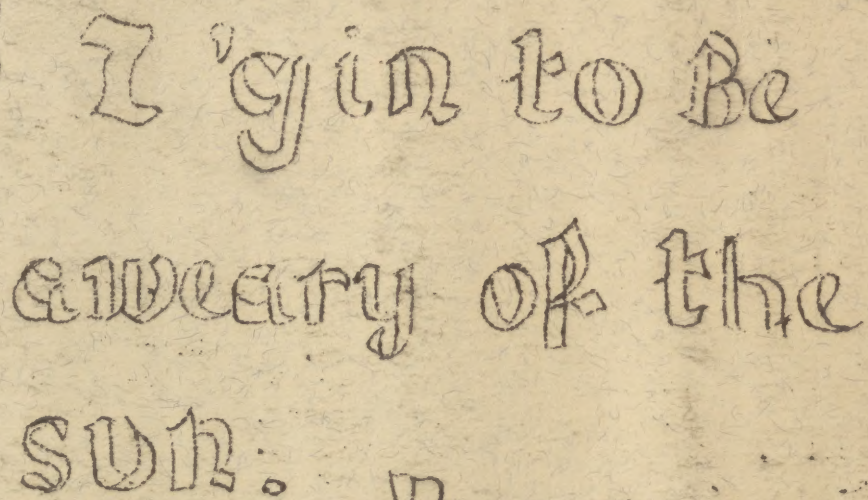 I 'gin to Be
aweary of the
sun.